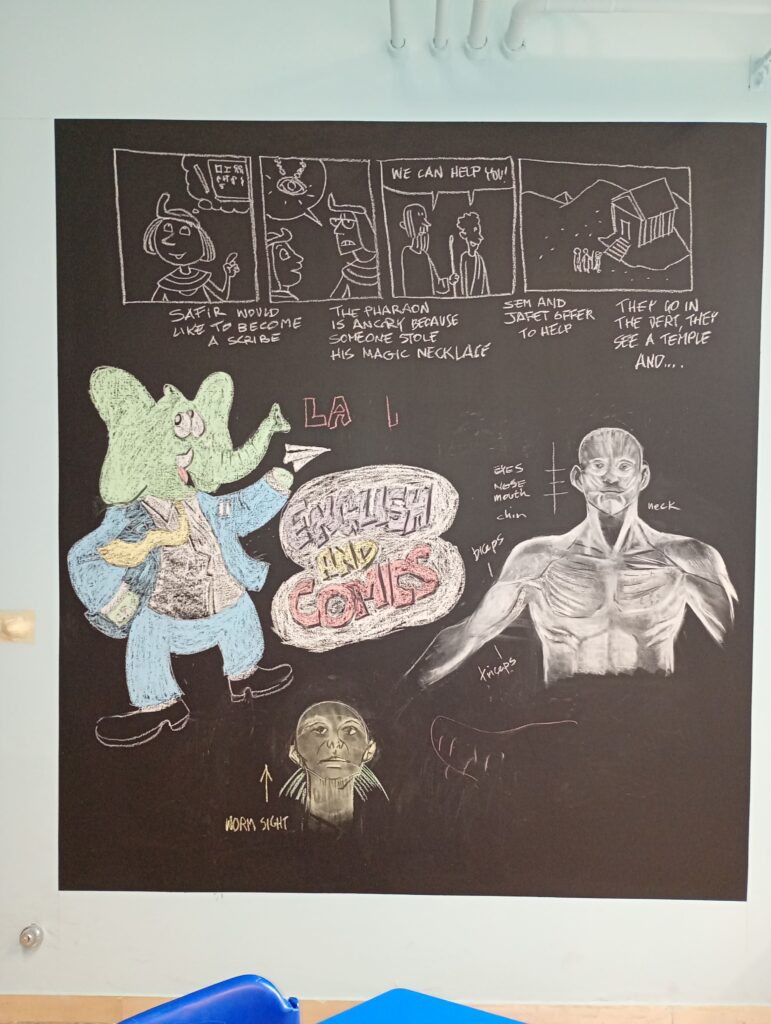 WE CAN HELP YOU!
SAFIR WOULD
LIKE TO BECOME
A SCRIBE
THE PHARAON
IS ANGRY BECAUSE
SOMEONE STOLE
HIS MAGIC NECKLACE
SEM AND
JAFET OFFER
TO HELP
THEY GO IN
THE DERT, THEY
SEE A TEMPLE
AND....
LA
ENGLISH
AND
COMICS
EYES
NOSE
mouth
chin
neck
biceps
triceps
WORM SIGHT